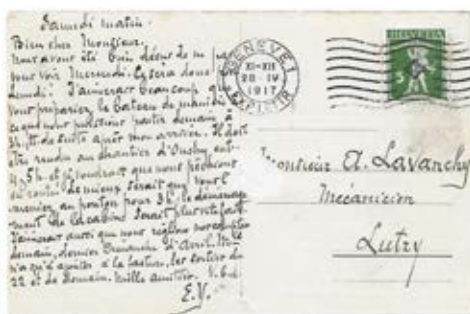 Samedi matin.
Bien cher Monsieur,
Nous avons été bien déçus de ne
pour voir Mercredi. Ce sera donc
lundi! J'aimerais beaucoup que
vous prépariez le bateau de manière
que nous puissions partir demain à
de suite après mon arrivée. Il doit
être rendu au chantier d'Ouchy
4.5h et je voudrais que nous
le mieux serait que vous l'
ameniez au ponton pour 3h. le
de la cabine serait plus vite fait.
J'aimerais aussi que nous réglions nos comptes
demain, dernier Dimanche d'avril.
n'a qu'à ajouter à la facture, les sorties du
22 et de Demain. Mille amitiés.
E.V.
GENÈVE 1
XI-XII
28 IV
1917
EXP. LETTR
HELVETIA
5
Monsieur A. Lavanchy
Mécanicien
Lutry